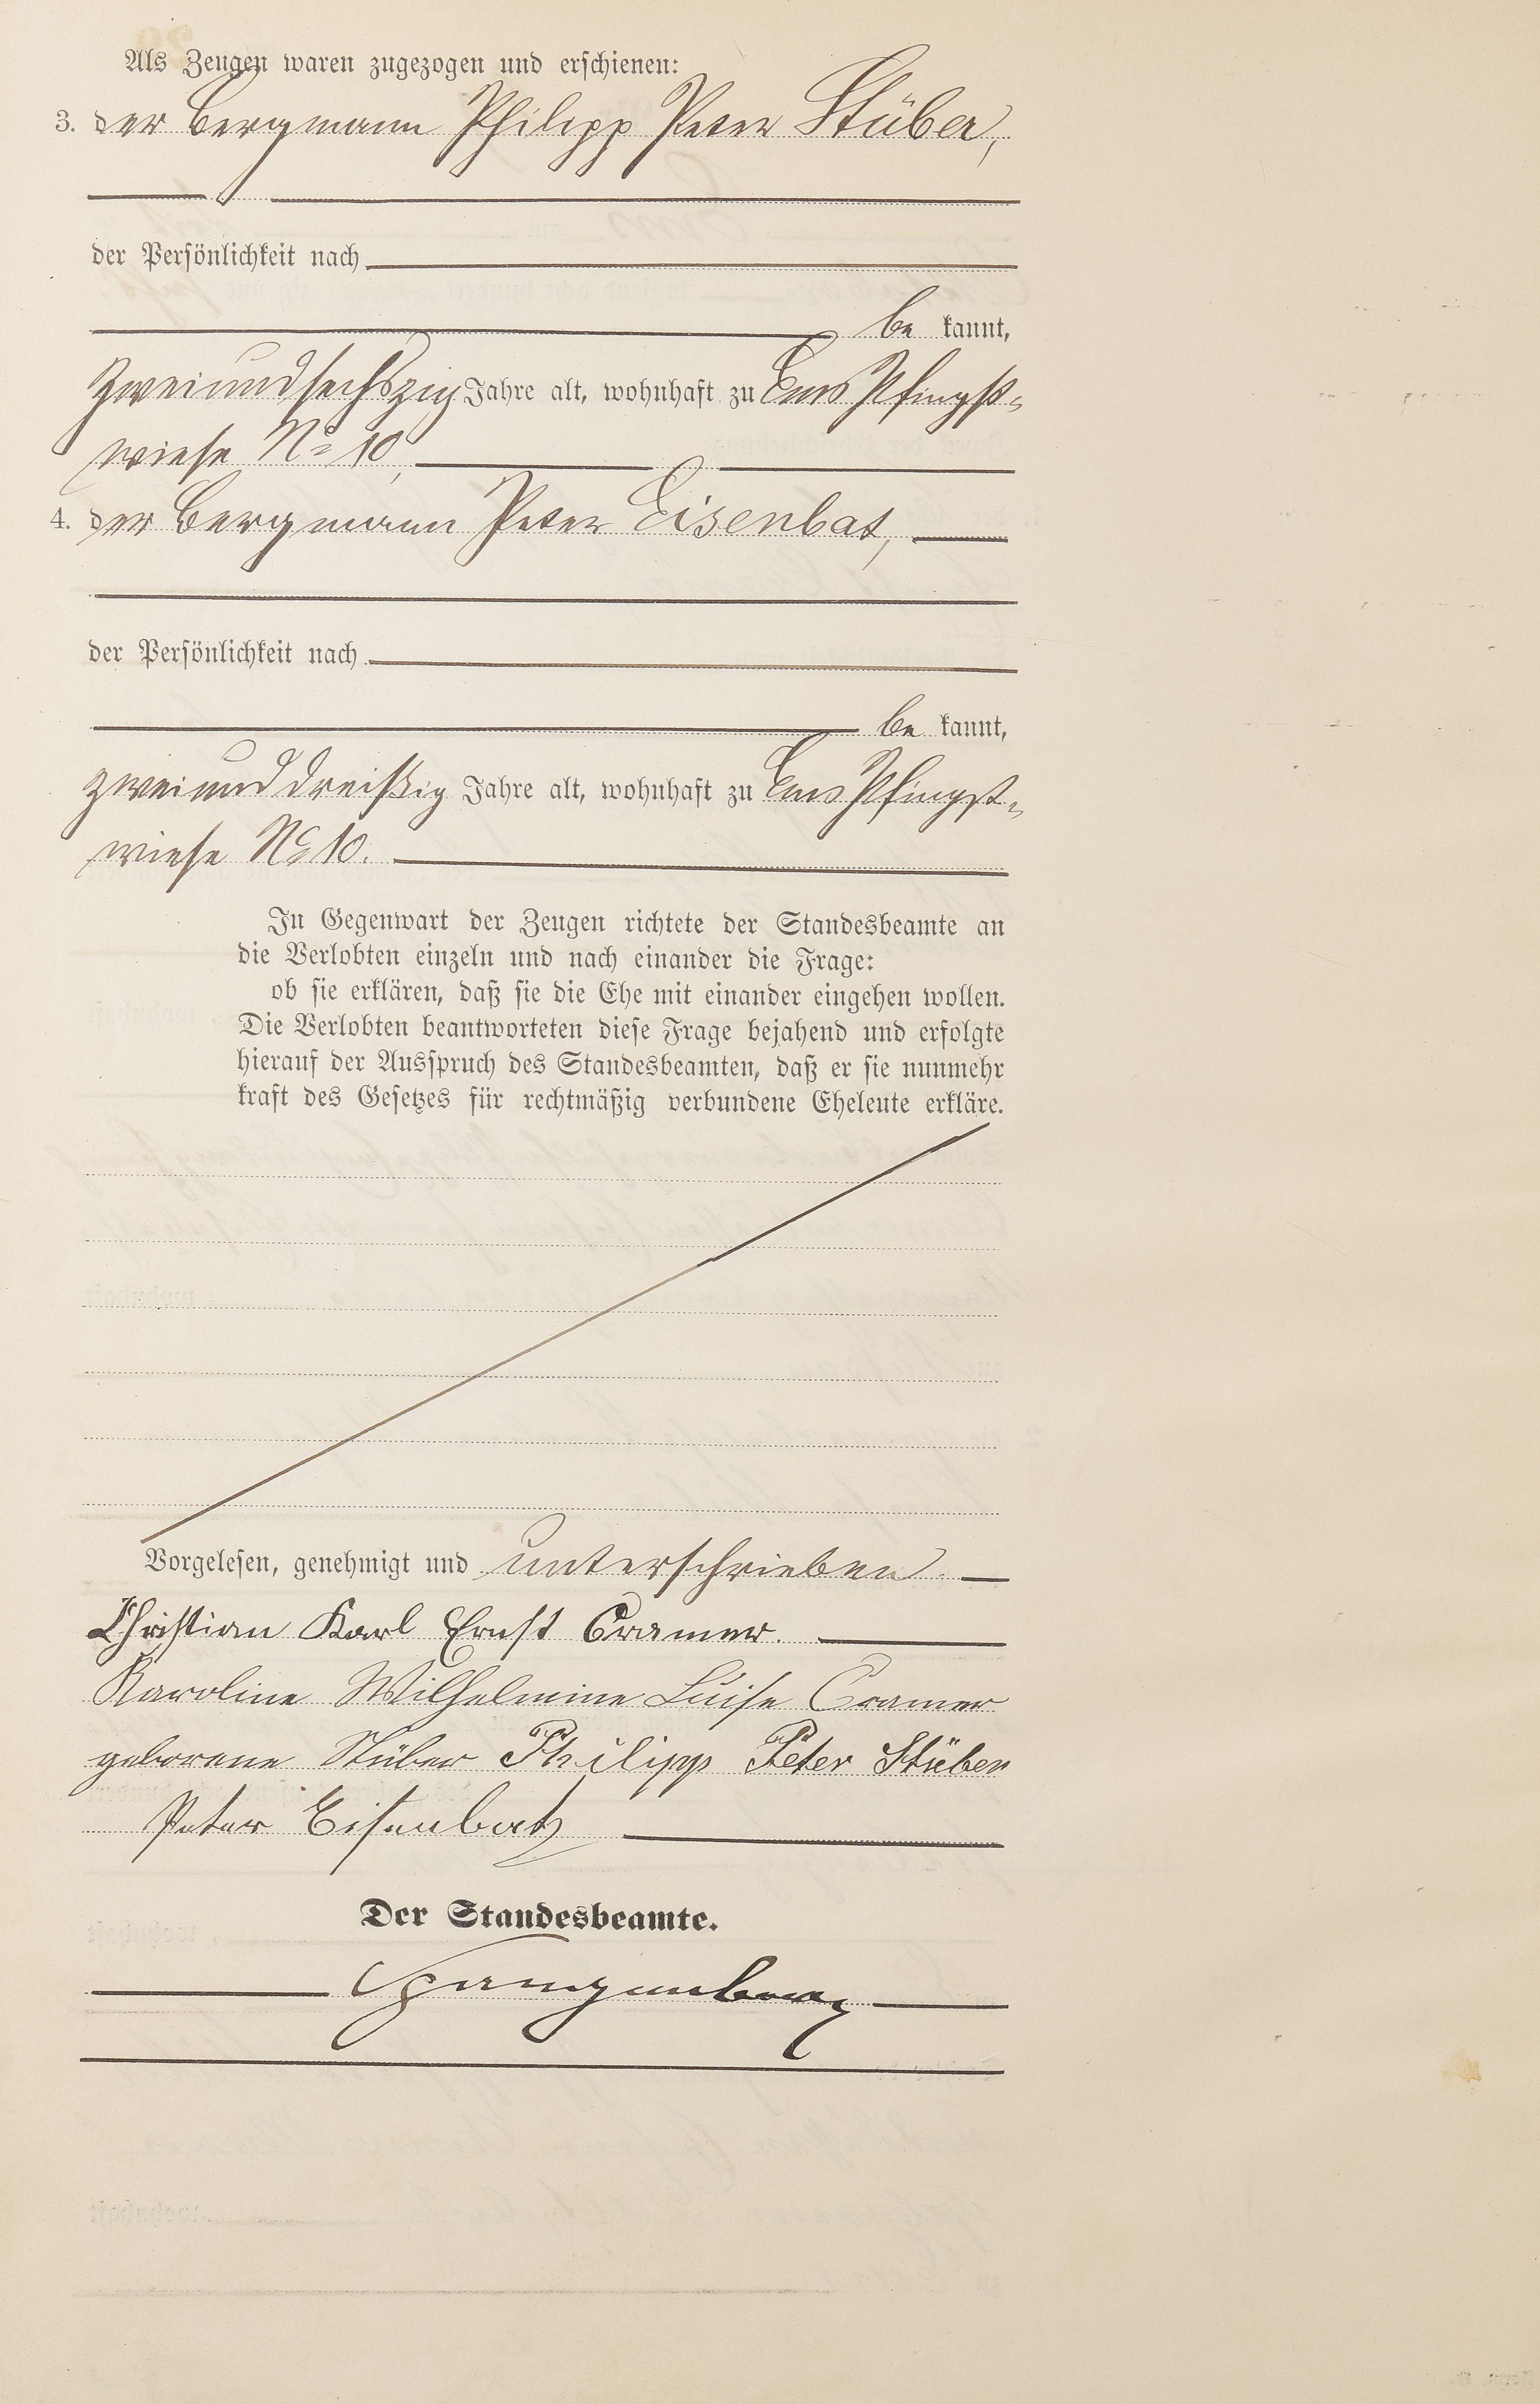 Als Zeugen waren zugezogen und erschienen:
3. der Bergmann Philipp Peter Stüber,
der Persönlichkeit nach
be kannt,
zweiundsechszig Jahre alt, wohnhaft zu Ems Pfingst-
wiese No 10,
4. der Bergmann Peter Eisenbat,
der Persönlichkeit nach
be kannt,
zweiunddreißig Jahre alt, wohnhaft zu Ems Pfingst-
wiese No 10.
In Gegenwart der Zeugen richtete der Standesbeamte an
die Verlobten einzeln und nach einander die Frage:
ob sie erklären, daß sie die Ehe mit einander eingehen wollen.
Die Verlobten beantworteten diese Frage bejahend und erfolgte
hierauf der Ausspruch des Standesbeamten, daß er sie nunmehr
kraft des Gesetzes für rechtmäßig verbundene Eheleute erkläre.
Vorgelesen, genehmigt und unterschrieben.
Christian Karl Ernst Cramer.
Karoline Wilhelmine Luise Cramer
geborene Stüber Philipp Peter Stüber
Peter Eisenbatz
Der Standesbeamte.
Spangenberg